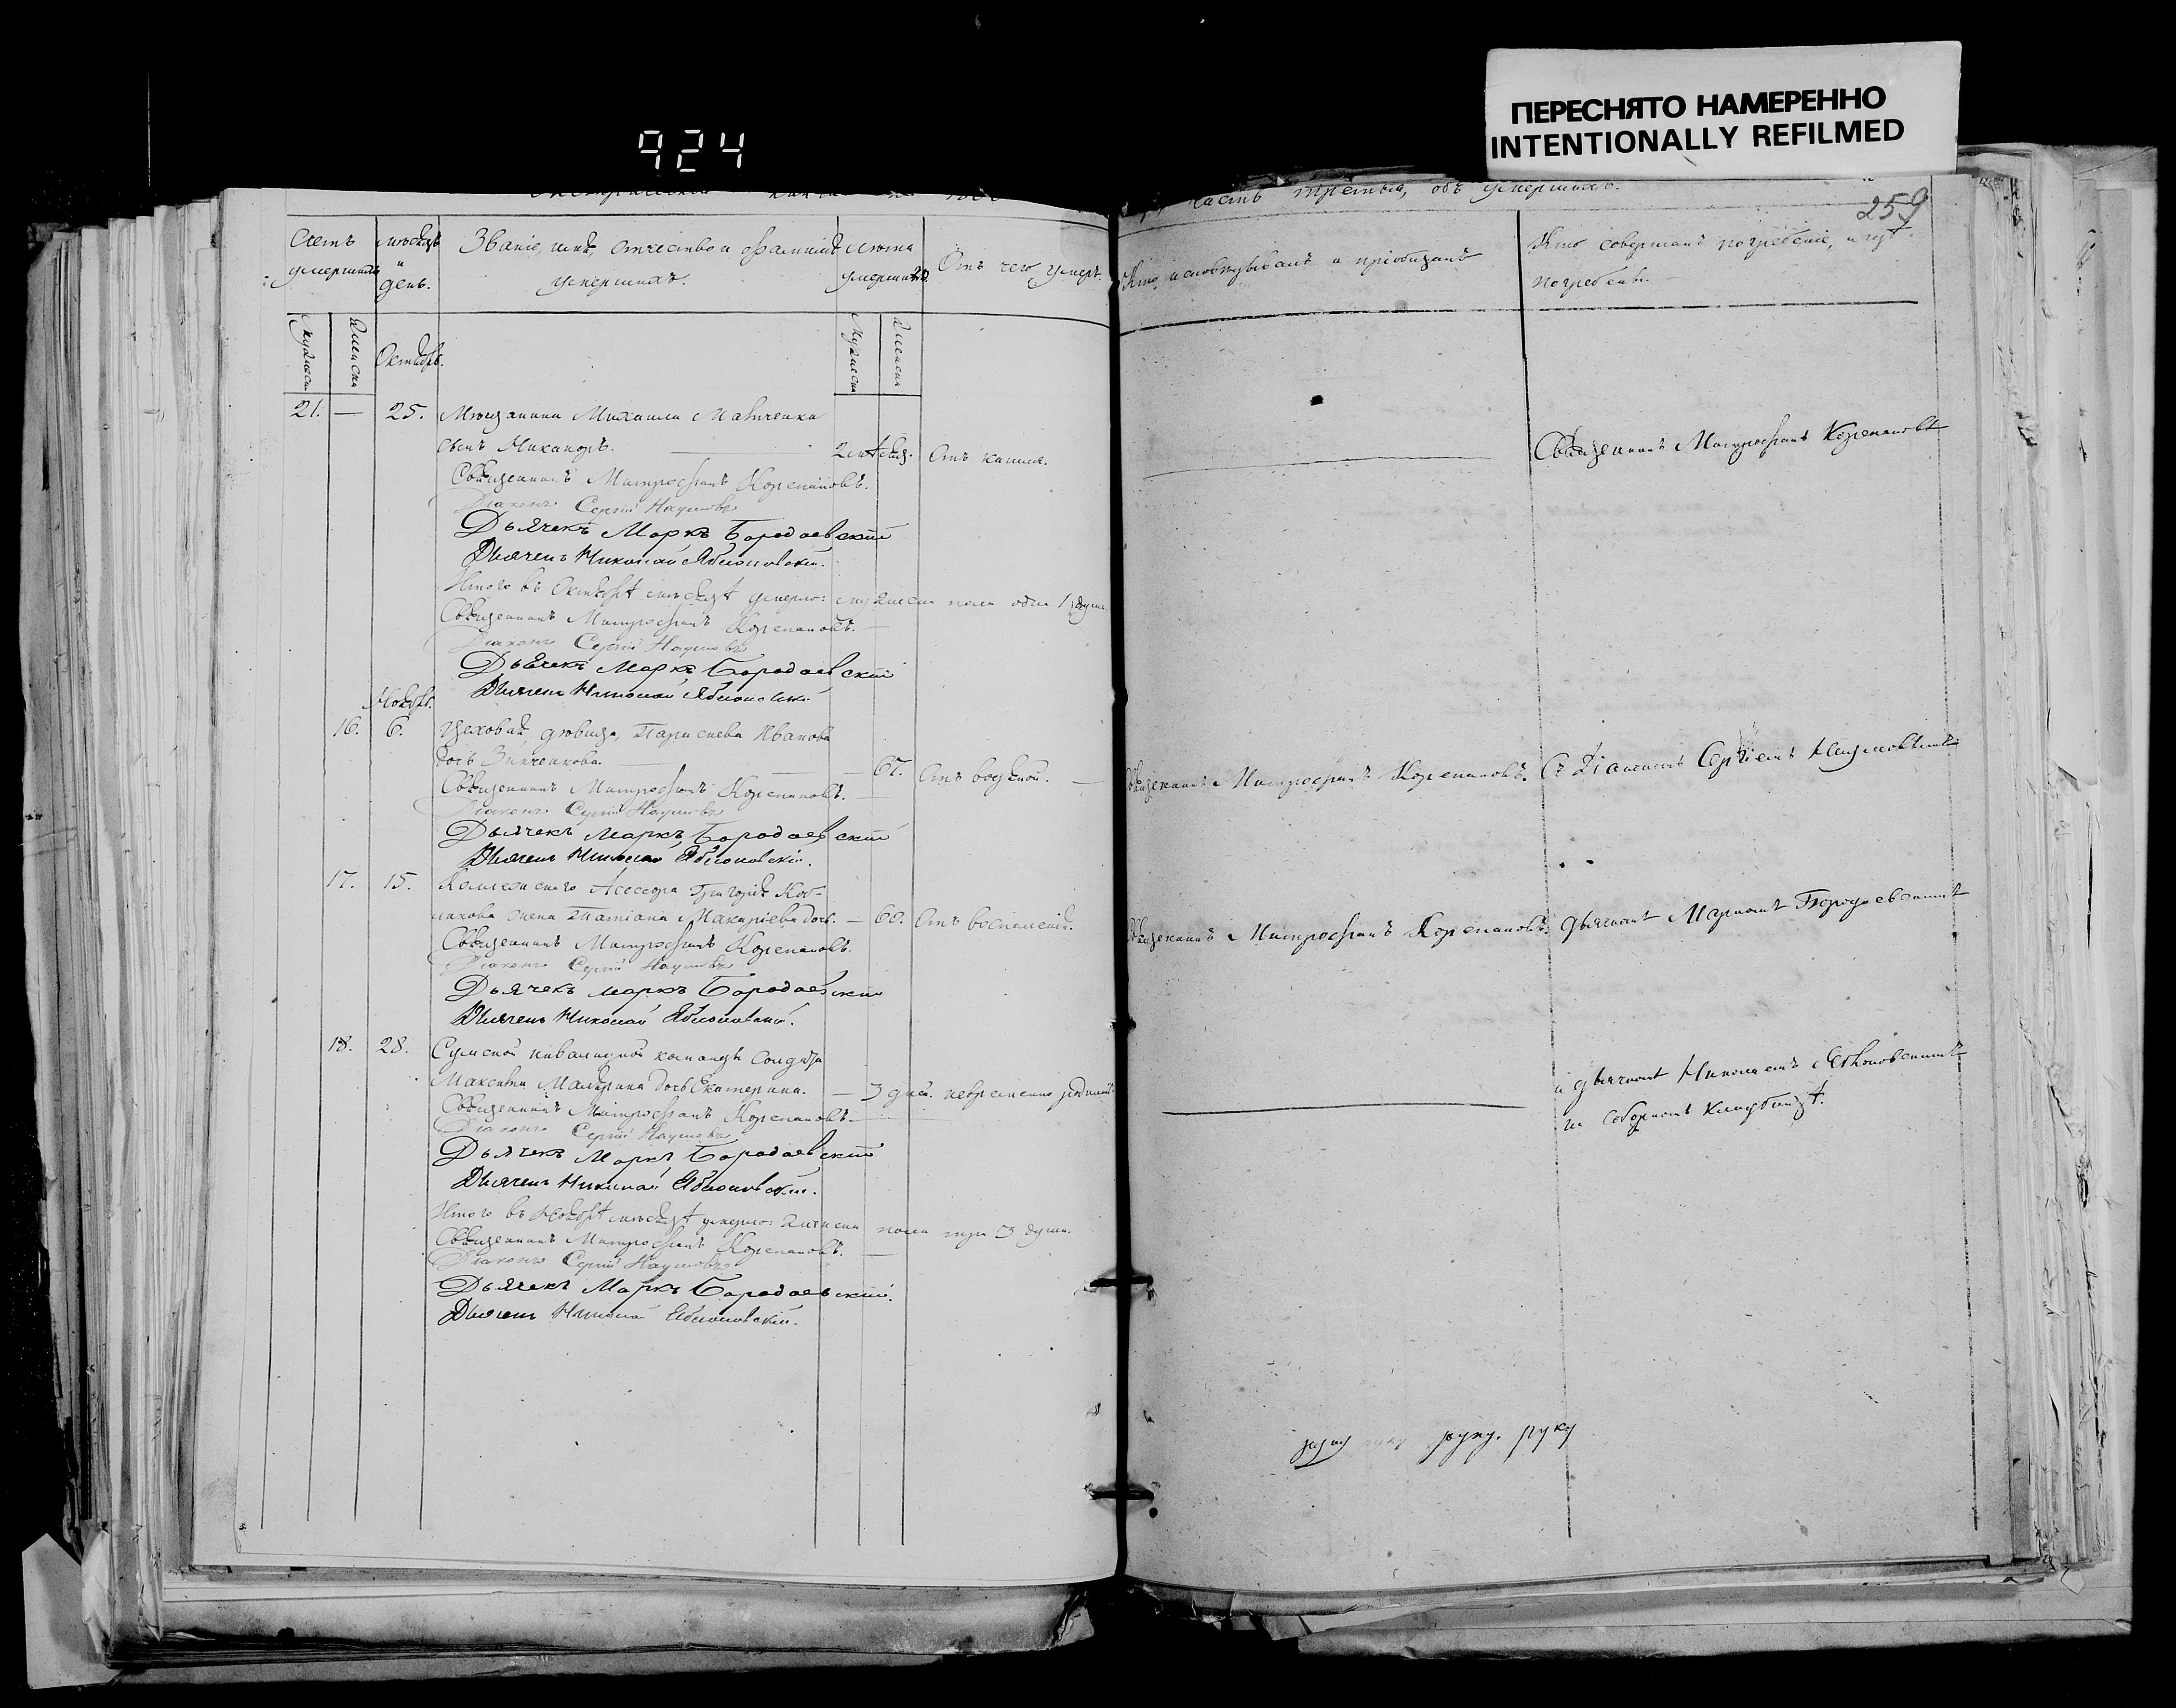 924
ПЕРЕСНЯТО НАМЕРЕННО
INTENTIONALLY REFILMED
259
часть третья, объ умершихъ.
Счетъ умершихъ
мѣсяцъ и день.
Званіе, имя, отчество и фамилія умершихъ.
Лѣта умершихъ
Отъ чего умеръ.
Кто исповѣдывалъ и пріобщалъ
Кто совершалъ погребеніе, и гдѣ погребены.
Мужеска
Женска
Октябрь.
Мужеска
Женска
21. — 25. Мѣщанина Михаила
сынъ Никаноръ. 2 мѣсяц. Отъ кашля.
Священникъ Митрофанъ Корепановъ
Священникъ Митрофанъ Корепановъ.
Діаконъ Сергій Наумовъ
Дьячекъ Маркъ Бородаевскій
Дьячекъ Николай Яблоновскій.
Итого въ Октябрѣ мѣсяцѣ умерло: мужеска пола одна 1 душа.
Священникъ Митрофанъ Корепановъ.
Діаконъ Сергій Наумовъ
Дьячекъ Маркъ Бородаевскій
Дьячекъ Николай Яблоновскій
Ноябрь.
16. 6. Цеховая, дѣвица, Иванова
дочь Зинченкова. — 67. Отъ водяной. —
Священникъ Митрофанъ Корепановъ. Съ Діакономъ Сергіемъ Наумовымъ
Священникъ Митрофанъ Корепановъ.
Діаконъ Сергій Наумовъ
Дьячекъ Маркъ Бородаевскій
Дьячекъ Николай Яблоновскій.
17. 15. Коллежскаго Асессора Григорія
жена Татіана Макаріева дочь. — 60. Отъ воспаленія.
Священникъ Митрофанъ Корепановъ. дьячкомъ Маркомъ Бородаевскимъ
Священникъ Митрофанъ Корепановъ.
Діаконъ Сергій Наумовъ
Дьячекъ Маркъ Бородаевскій
Дьячекъ Николай Яблоновскій.
18. 28. Сумской инвалидной команды солдата
Максима дочь Екатерина. — 3 дней.
и дьячкомъ Николаемъ Яблоновскимъ
на соборномъ кладбищѣ.
Священникъ Митрофанъ Корепановъ —
Діаконъ Сергій Наумовъ
Дьячекъ Маркъ Бородаевскій
Дьячекъ Николай Яблоновскій.
Итого въ Ноябрѣ мѣсяцѣ умерло: женска пола три 3 души.
Священникъ Митрофанъ Корепановъ. —
Діаконъ Сергій Наумовъ
Дьячекъ Маркъ Бородаевскій.
Дьячекъ Николай Яблоновскій.
руку. руку